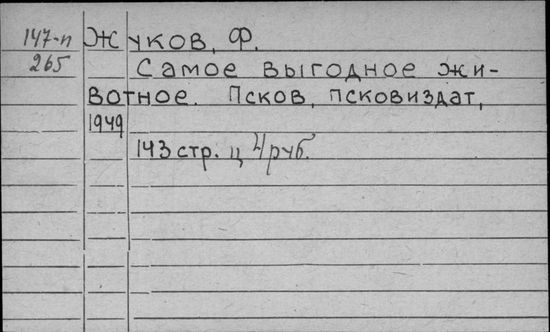 147-п Жуков, Ф.
265 Самое выгодное жи-
вотное. Псков, псковиздат,
1949
143 стр. ц 4 руб.